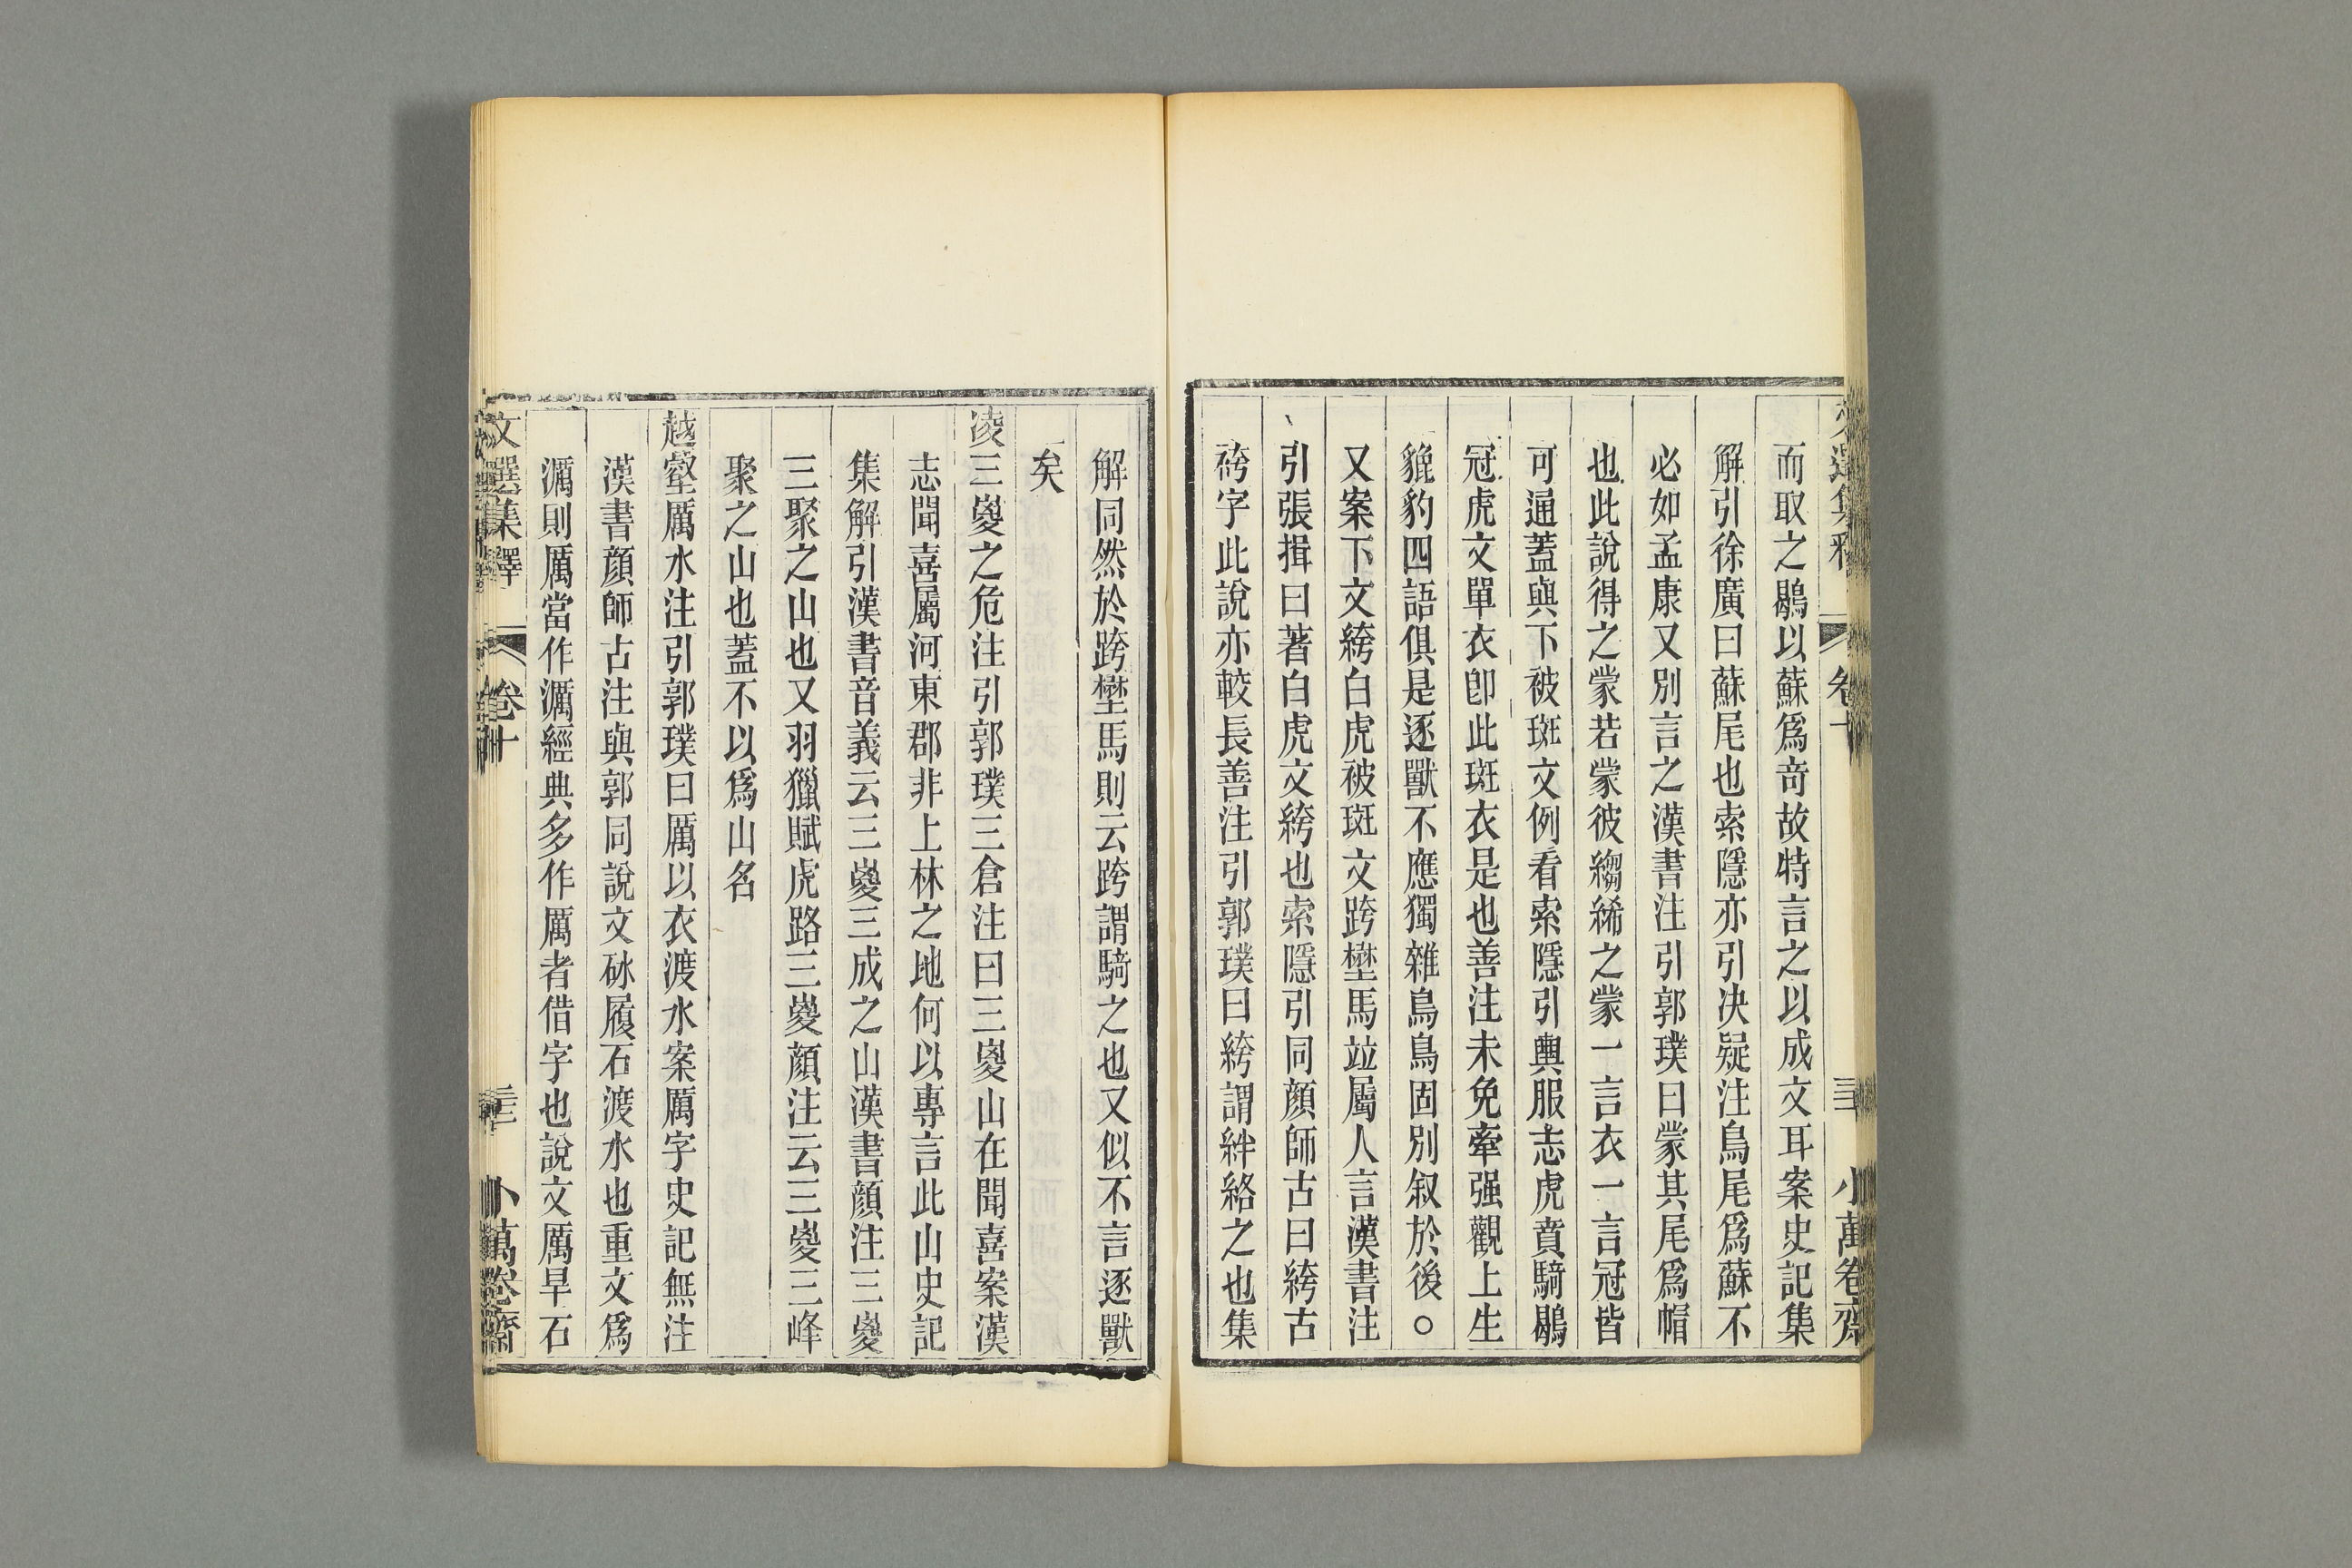 文選集釋 卷十 三十 小萬卷齋
而取之鶡以蘇爲奇故特言之以成文耳案史記集
解引徐廣曰蘇尾也索隱亦引决疑注鳥尾爲蘇不
必如孟康又別言之漢書注引郭璞曰蒙其尾爲帽
也此說得之蒙若蒙彼縐絺之蒙一言衣一言冠皆
可通蓋與下被斑文例看索隱引輿服志虎賁騎鶡
冠虎文單衣卽此斑衣是也善注未免牽强觀上生
貔豹四語俱是逐獸不應獨雜鳥鳥固別叙於後○
又案下文絝白虎被斑文跨壄馬竝屬人言漢書注
引張揖曰著白虎文絝也索隱引同顔師古曰絝古
袴字此說亦較長善注引郭璞曰絝謂絆絡之也集
解同然於跨壄馬則云跨謂騎之也又似不言逐獸
矣
凌三嵏之危注引郭璞三倉注曰三嵏山在聞喜案漢
志聞喜屬河東郡非上林之地何以專言此山史記
集解引漢書音義云三嵏三成之山漢書顔注三嵏
三聚之山也又羽獵賦虎路三嵏顔注云三嵏三峰
聚之山也蓋不以爲山名
越壑厲水注引郭璞曰厲以衣渡水案厲字史記無注
漢書顔師古注與郭同說文砅履石渡水也重文爲
濿則厲當作濿經典多作厲者借字也說文厲旱石
文選集釋 卷十 小萬卷齋